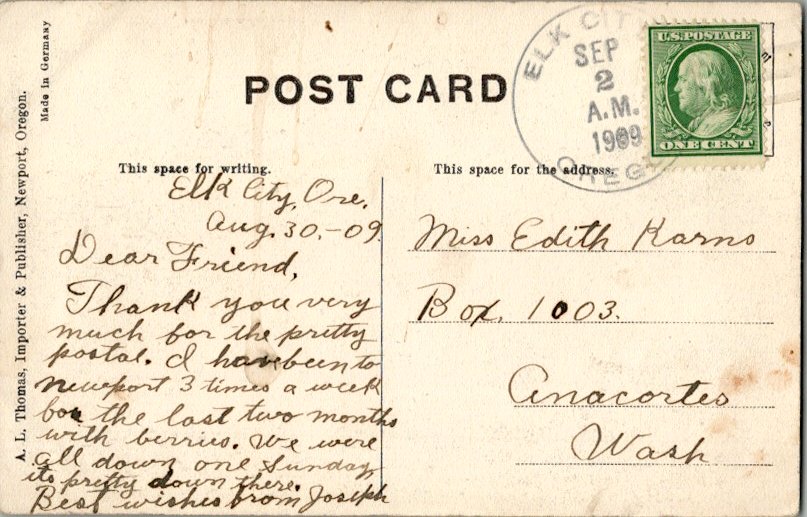 Made in Germany
A. L. Thomas, Importer & Publisher, Newport, Oregon.
POST CARD
ELK CITY
SEP
2
A.M.
1909
OREG
U.S. POSTAGE
ONE CENT
This space for writing.
This space for the address.
Elk City, Ore.
Aug. 30.-09.
Dear Friend,
Thank you very
much for the pretty
postal. I have been to
Newport 3 times a week
for the last two months
with berries. We were
all down one Sunday
its pretty down there.
Best wishes from Joseph
Miss Edith Karno
Box. 1003.
Anacortes
Wash